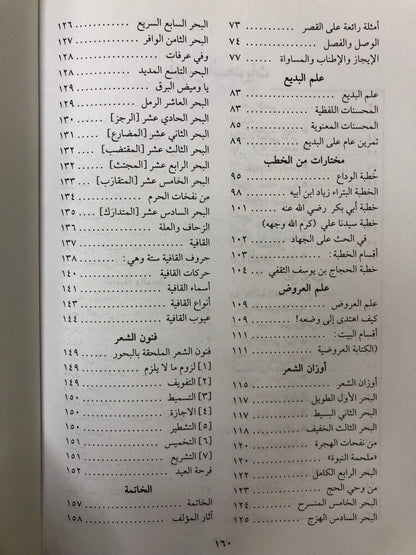 أمثلة رائعة على القصر .......... ٧٣
الوصل والفصل .......... ٧٤
الإيجاز والإطناب والمساواة .......... ٧٧
علم البديع
علم البديع .......... ٨٣
المحسنات اللفظية .......... ٨٣
المحسنات المعنوية .......... ٨٥
تمرين عام على البديع .......... ٨٩
مختارات من الخطب
خُطبة الوداع .......... ٩٥
الخطبة البتراء زياد ابن أبيه .......... ٩٨
خطبة أبي بكر رضي الله عنه .......... ١٠١
خطبة سيدنا علي (كرم الله وجهه)
في الحث على الجهاد .......... ١٠٢
أقسام الخطبة: .......... ١٠٣
خطبة الحجاج بن يوسف الثقفي .......... ١٠٤
علم العروض
علم العروض .......... ١٠٩
كيف اهتدى إلى وضعه! .......... ١٠٩
أقسام البيت: .......... ١١١
(الكتابة العروضية .......... ١١١
أوزان الشعر!
أوزان الشعر .......... ١١٥
البحر الأول الطويل .......... ١١٧
البحر الثاني البسيط .......... ١١٧
البحر الثالث الخفيف .......... ١١٨
من نفحات الهجرة .......... ١٢٠
«ملحمة النبوة» .......... ١٢٠
البحر الرابع الكامل .......... ١٢٢
من وحي الحج .......... ١٢٣
البحر الخامس المنسرح .......... ١٢٤
البحر السادس الهزج .......... ١٢٥
البحر السابع السريع .......... ١٢٦
البحر الثامن الوافر .......... ١٢٧
وفي عرفات .......... ١٢٨
البحر التاسع المديد .......... ١٢٨
يا وميض البرق .......... ١٢٩
البحر العاشر الرمل .......... ١٢٩
البحر الحادي عشر [الرجز] .......... ١٣٠
البحر الثاني عشر [المضارع] .......... ١٣١
البحر الثالث عشر [المقتضب] .......... ١٣٢
البحر الرابع عشر [المجتث] .......... ١٣٢
البحر الخامس عشر [المتقارَب] .......... ١٣٣
من نفحات الحرم .......... ١٣٤
البحر السادس عشر [المتدارَك] .......... ١٣٥
الزحاف والعلة .......... ١٣٦
القافية .......... ١٣٧
حروف القافية ستة وهي: .......... ١٣٨
حركات القافية .......... ١٤٠
أسماء القافية .......... ١٤١
أنواع القافية .......... ١٤٣
عيوب القافية .......... ١٤٤
فنون الشعر
فنون الشعر الملحقة بالبحور .......... ١٤٩
[١] لزوم ما لا يلزم .......... ١٤٩
[٢] التفويف .......... ١٤٩
[٣] التسميط .......... ١٥٠
[٤] الاجازة .......... ١٥٠
[٥] التشطير .......... ١٥٠
[٦] التخميس .......... ١٥١
[٧] التشريع .......... ١٥١
فرحة العيد .......... ١٥٢
الخاتمة
الخاتمة .......... ١٥٧
آثار المؤلف .......... ١٥٨
١٦٠